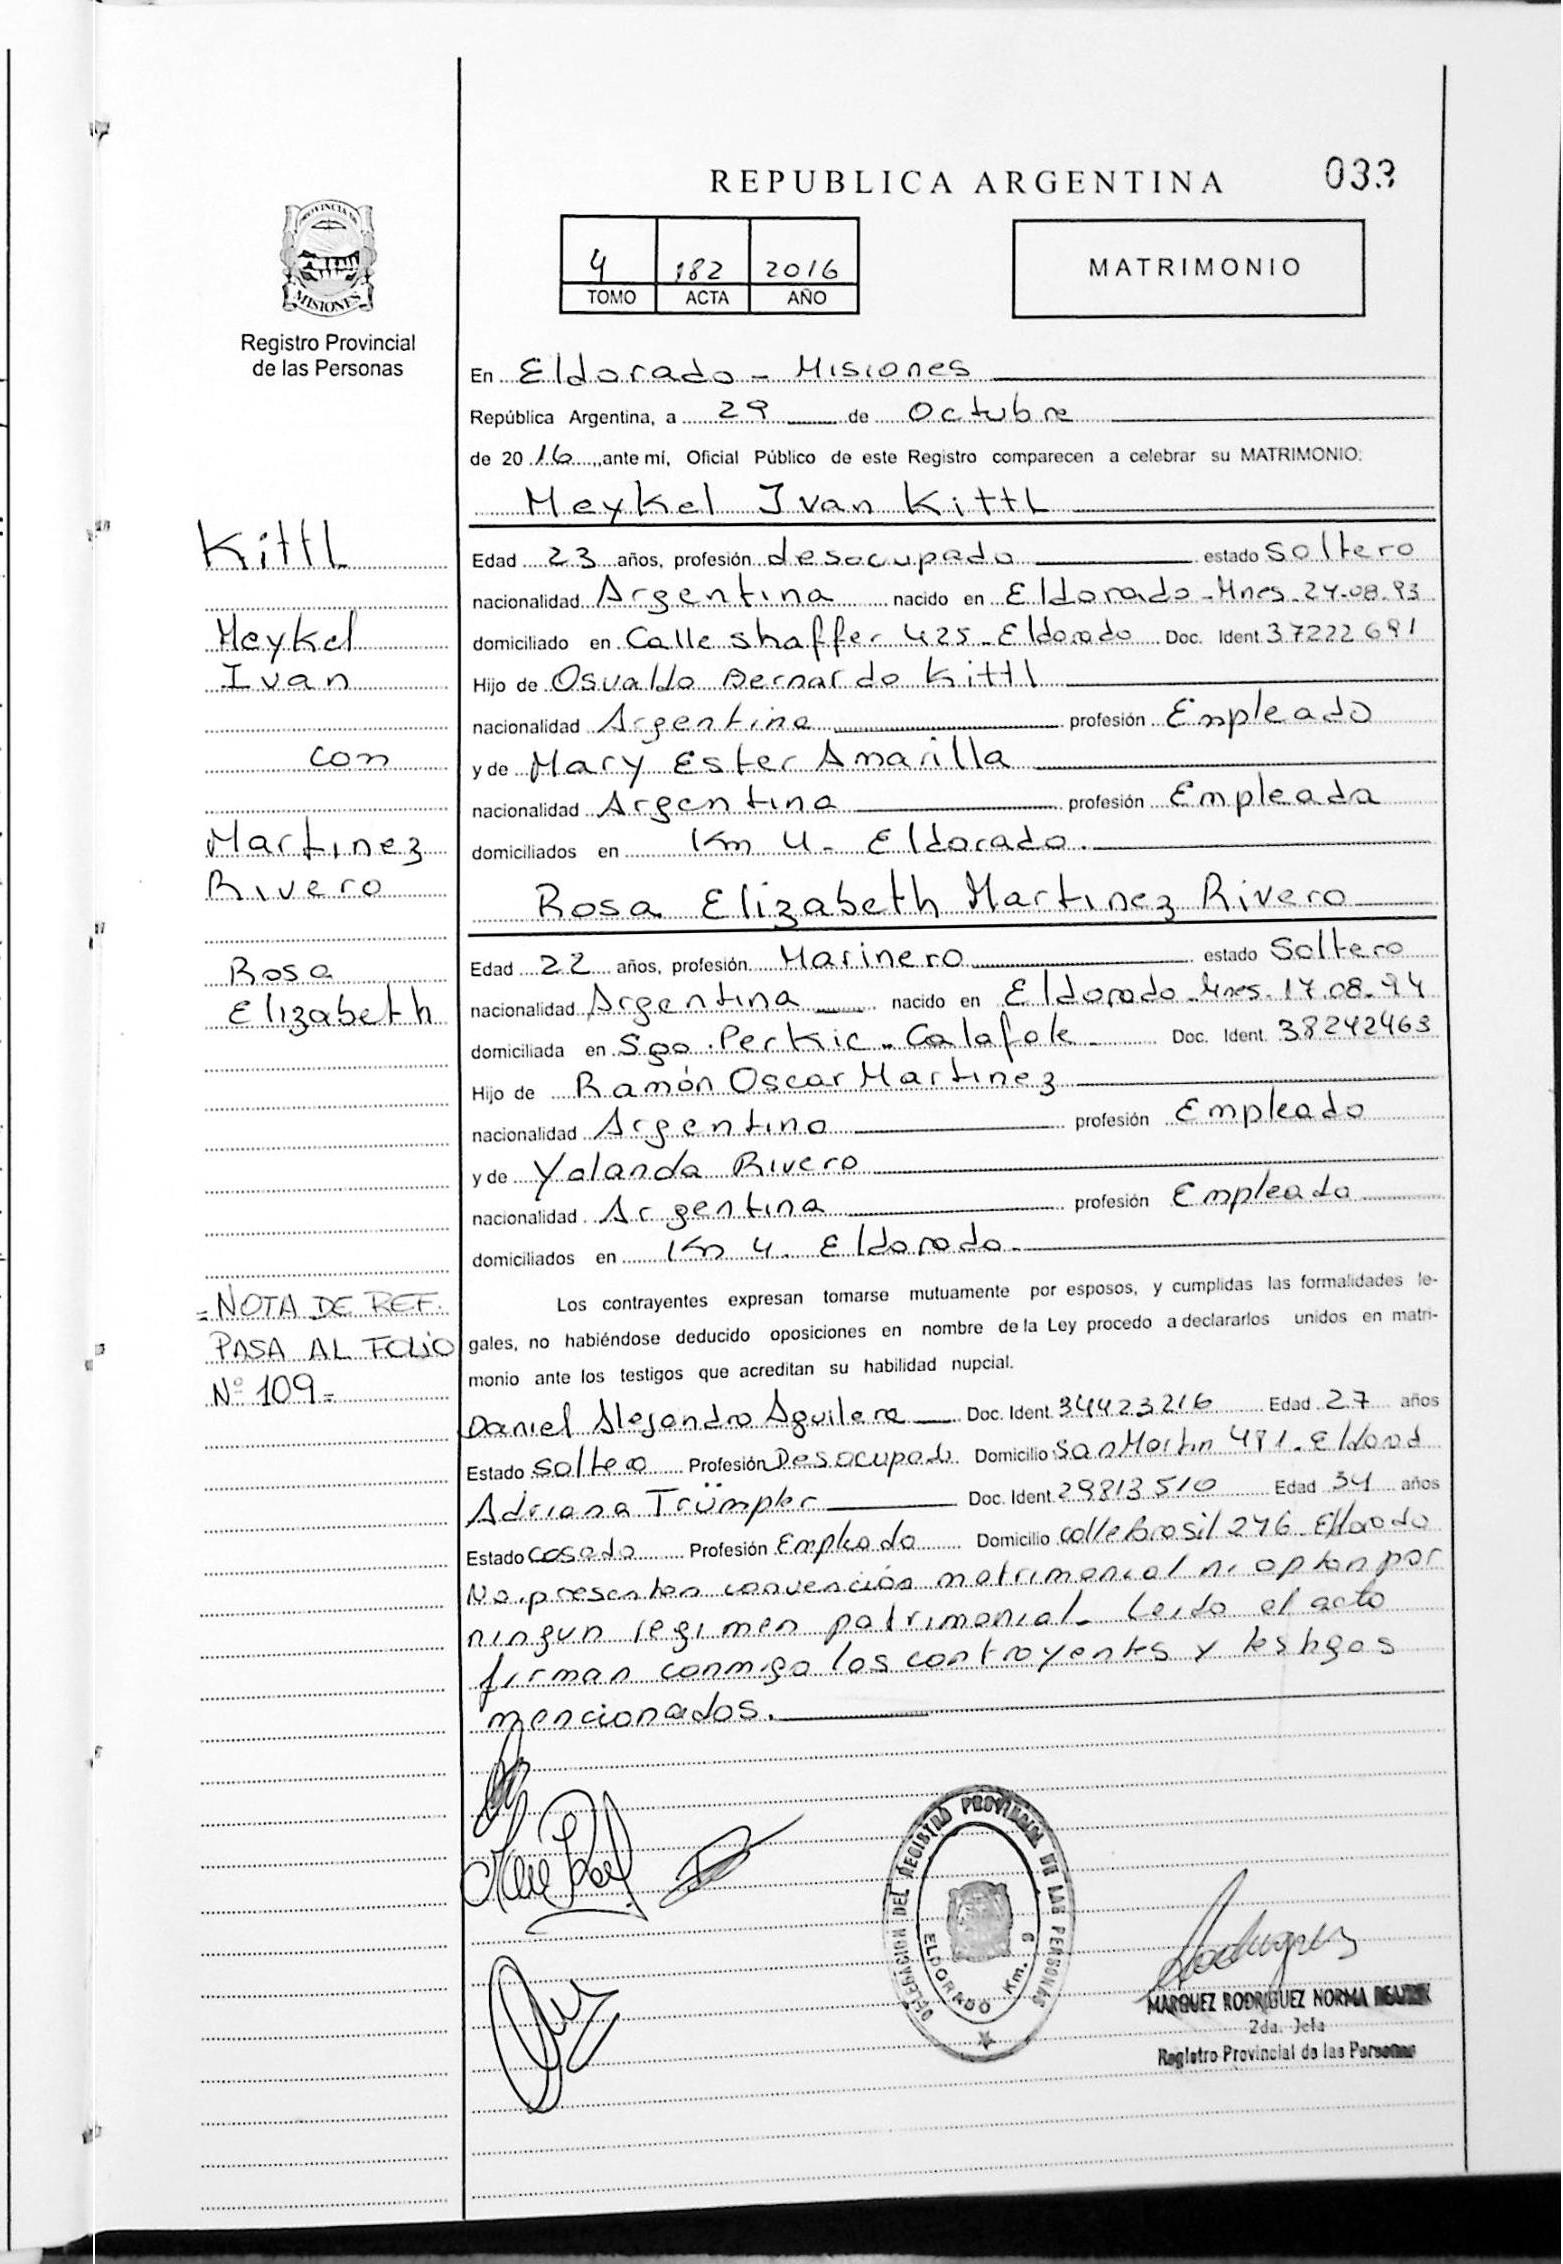 REPUBLICA ARGENTINA
033
PROVINCIA DE
MISIONES
Registro Provincial
de las Personas
4 182 2016
TOMO ACTA AÑO
MATRIMONIO
En Eldorado - Misiones
República Argentina, a 29 de Octubre
de 2016, ante mí, Oficial Público de este Registro comparecen a celebrar su MATRIMONIO:
Meykel Ivan Kittl
Edad 23 años, profesión desocupado estado Soltero
nacionalidad Argentina nacido en Eldorado - Mnes. 24-08.93
domiciliado en Calle shaffer 425 - Eldorado Doc. Ident. 37222691
Hijo de Osvaldo Bernardo Kittl
nacionalidad Argentina profesión Empleado
y de Mary Ester Amarilla
nacionalidad Argentina profesión Empleada
domiciliados en Km 4 - Eldorado.
Rosa Elizabeth Martinez Rivero
Edad 22 años, profesión Marinero estado Soltero
nacionalidad Argentina nacido en Eldorado - Mnes. 17.08.94
domiciliada en Sgo. - Calafate - Doc. Ident. 38242463
Hijo de Ramón Oscar Martinez
nacionalidad Argentino profesión Empleado
y de Yolanda Rivero
nacionalidad Argentina profesión Empleado
domiciliados en Km 4. Eldorado.
Los contrayentes expresan tomarse mutuamente por esposos, y cumplidas las formalidades le-
gales, no habiéndose deducido oposiciones en nombre de la Ley procedo a declararlos unidos en matri-
monio ante los testigos que acreditan su habilidad nupcial.
Daniel Alejandro Aguilera Doc. Ident. 34423216 Edad 27 años
Estado soltero Profesión Desocupado Domicilio San Martin 481 - Eldorad
Adriana Trümpler Doc. Ident. 29813510 Edad 34 años
Estado Casado Profesión Empleado Domicilio calle brasil 246 - Eldorado
No presentan convención matrimonial ni optan por
ningun regimen patrimonial - Leido el acto
firman conmigo los contrayentes y testigos
mencionados.
Kittl
Meykel
Ivan
con
Martinez
Rivero
Rosa
Elizabeth
= NOTA DE REF.
PASA AL FOLIO
Nº 109 =
DELEGACION DEL REGISTRO PROVINCIAL DE LAS PERSONAS
ELDORADO Km. 6
MARQUEZ RODRIGUEZ NORMA
2da. Jefa
Registro Provincial de las Personas